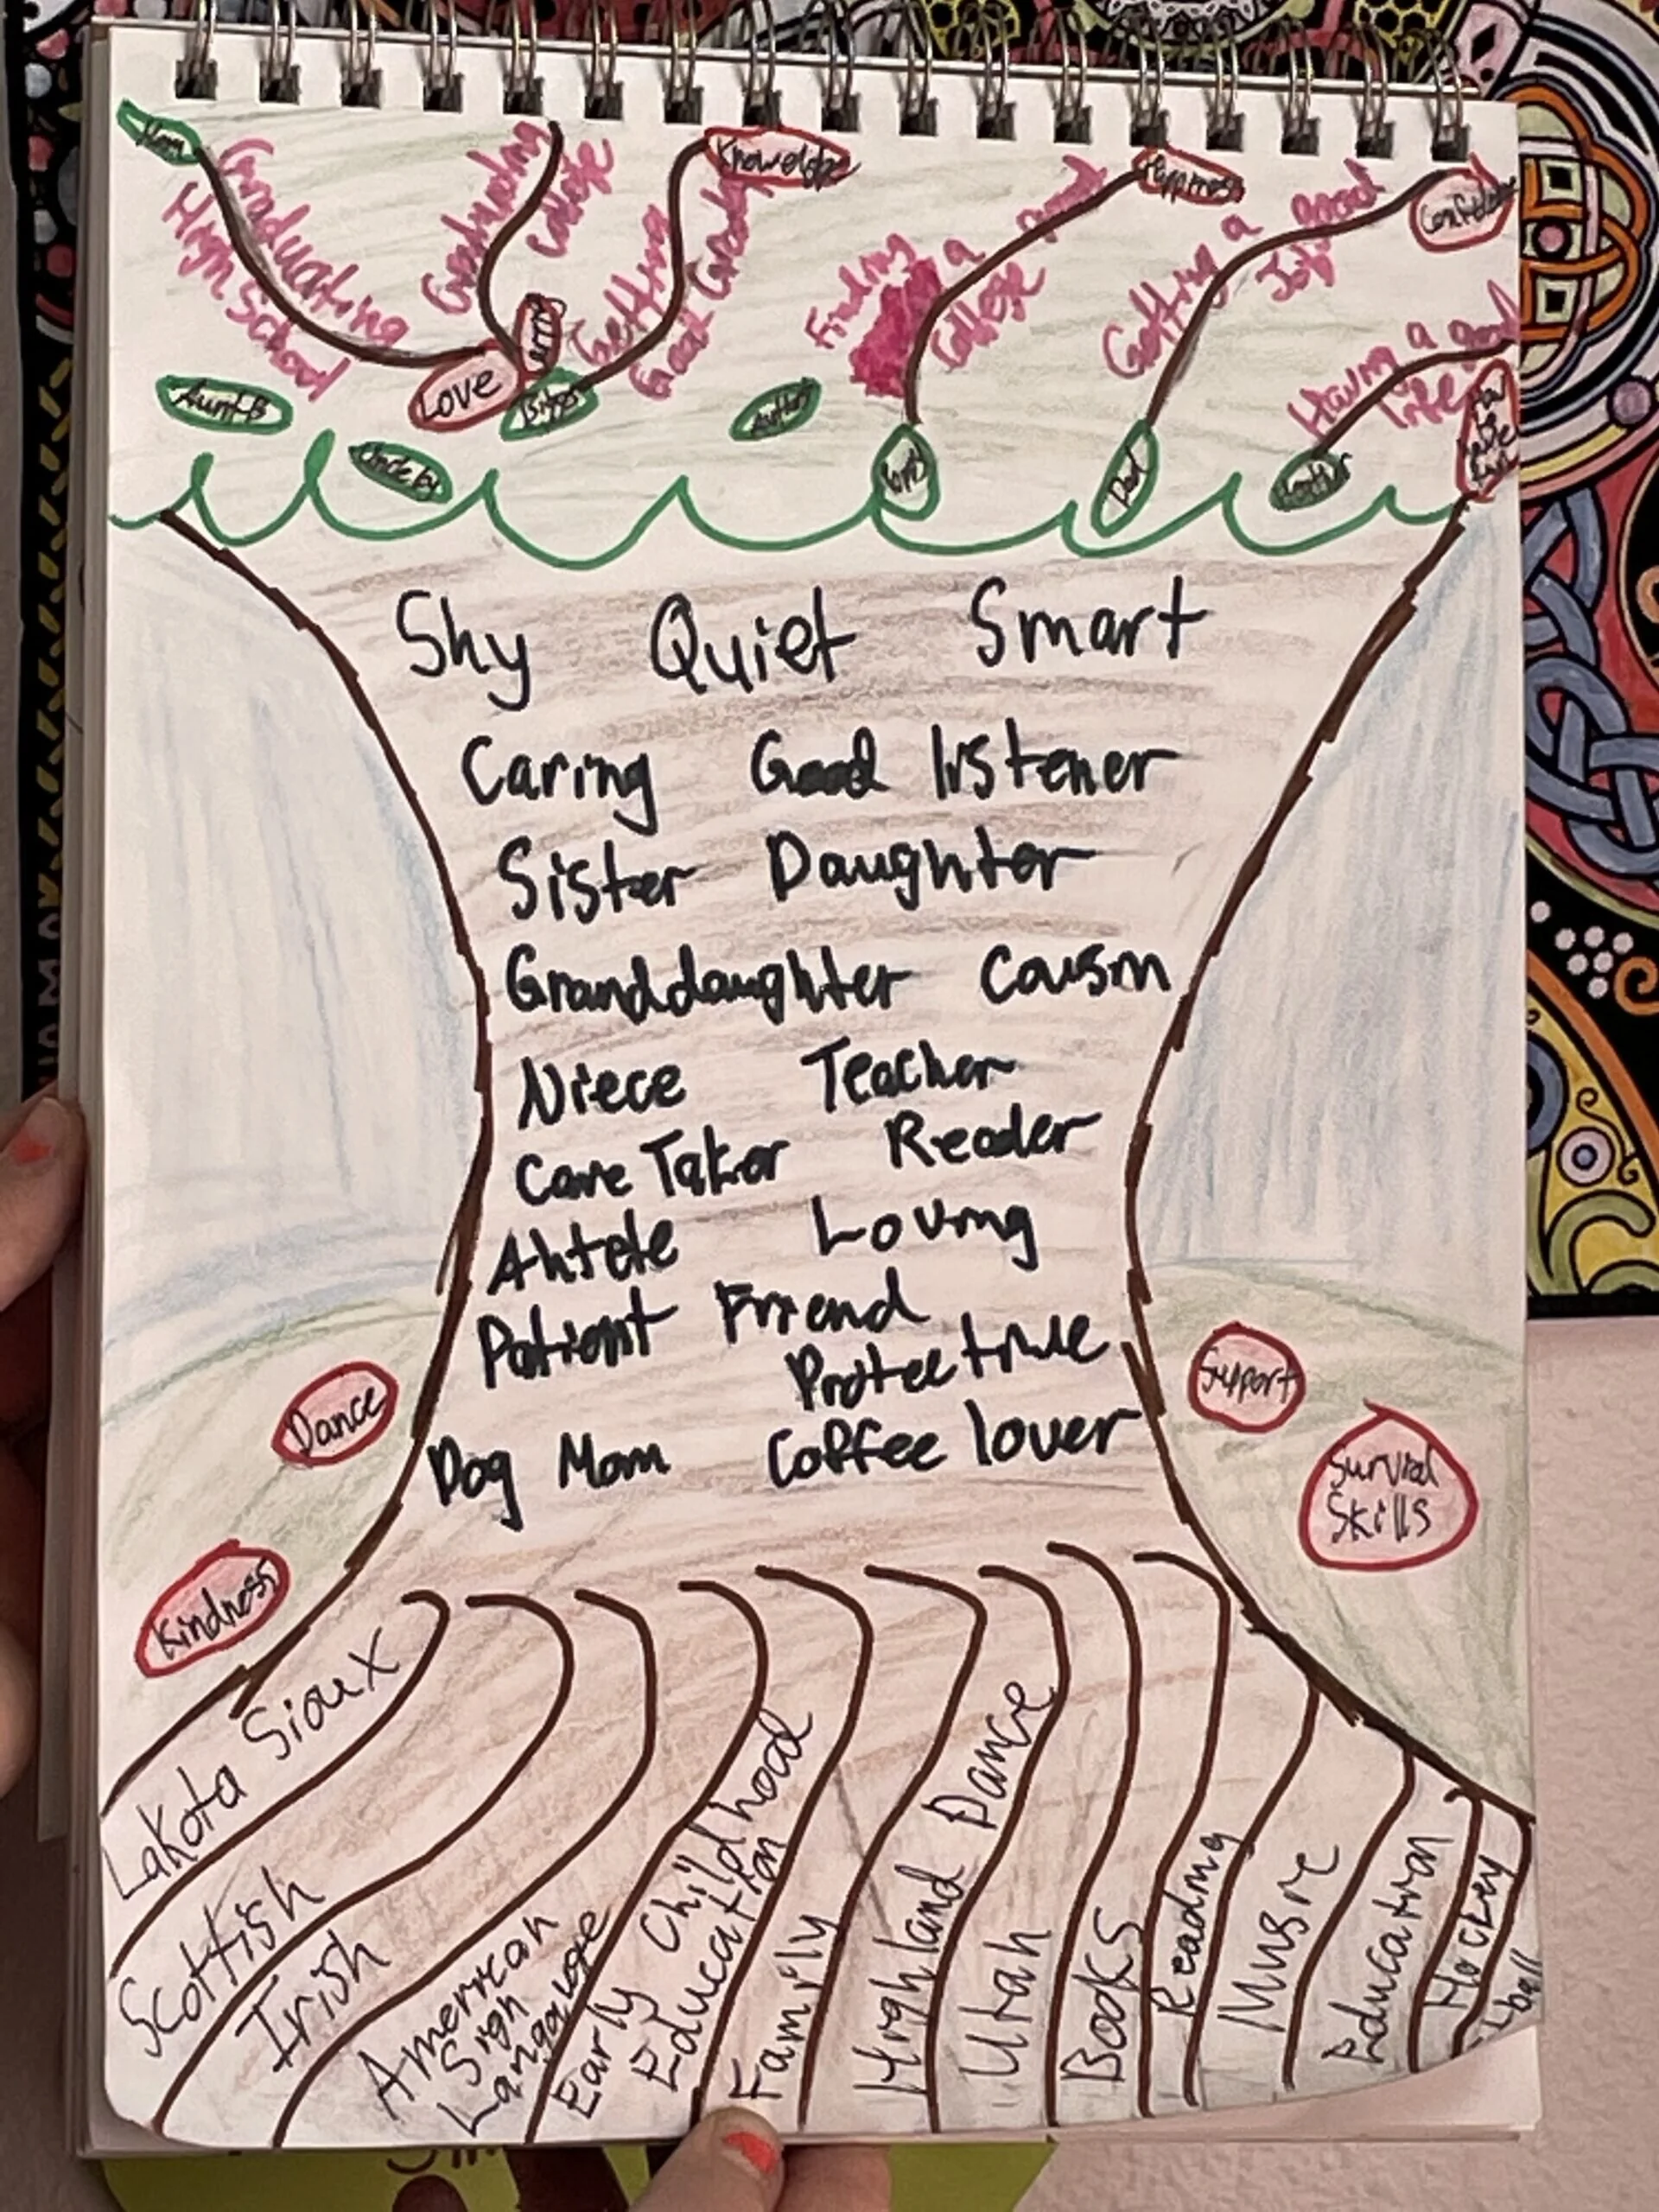 Mom
Graduating
High School
Graduating
College
Getting
Good Grades
Knowledge
Finding
a good
College
Happiness
Getting a
Good
Job
Having a good
life
Love
Aunt B
Sister
Dad
Shy Quiet Smart
Caring Good listener
Sister Daughter
Granddaughter Cousin
Niece Teacher
Care Taker Reader
Ahtele Loving
Patient Friend
Protective
Dog Mom Coffee lover
Dance
Kindness
Support
Survial
Skills
Lakota Sioux
Scottish
Irish
American
Sign
Language
Early Childhood
Education
Family
Highland Dance
Utah
Books
Reading
Music
Education
Hockey